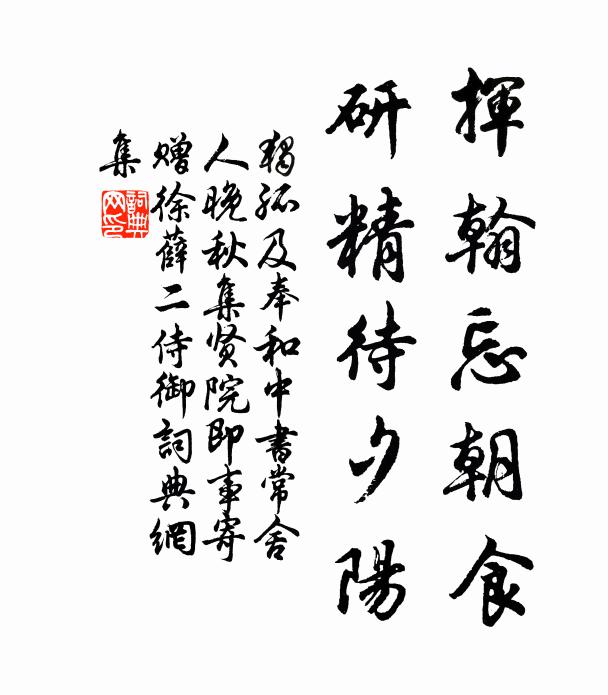 揮翰忘朝食
研精待夕陽
獨孤及奉和中書常舍
人晚秋集贤院即事寄
赠徐薛二侍御詞典網
集
詞典
网印